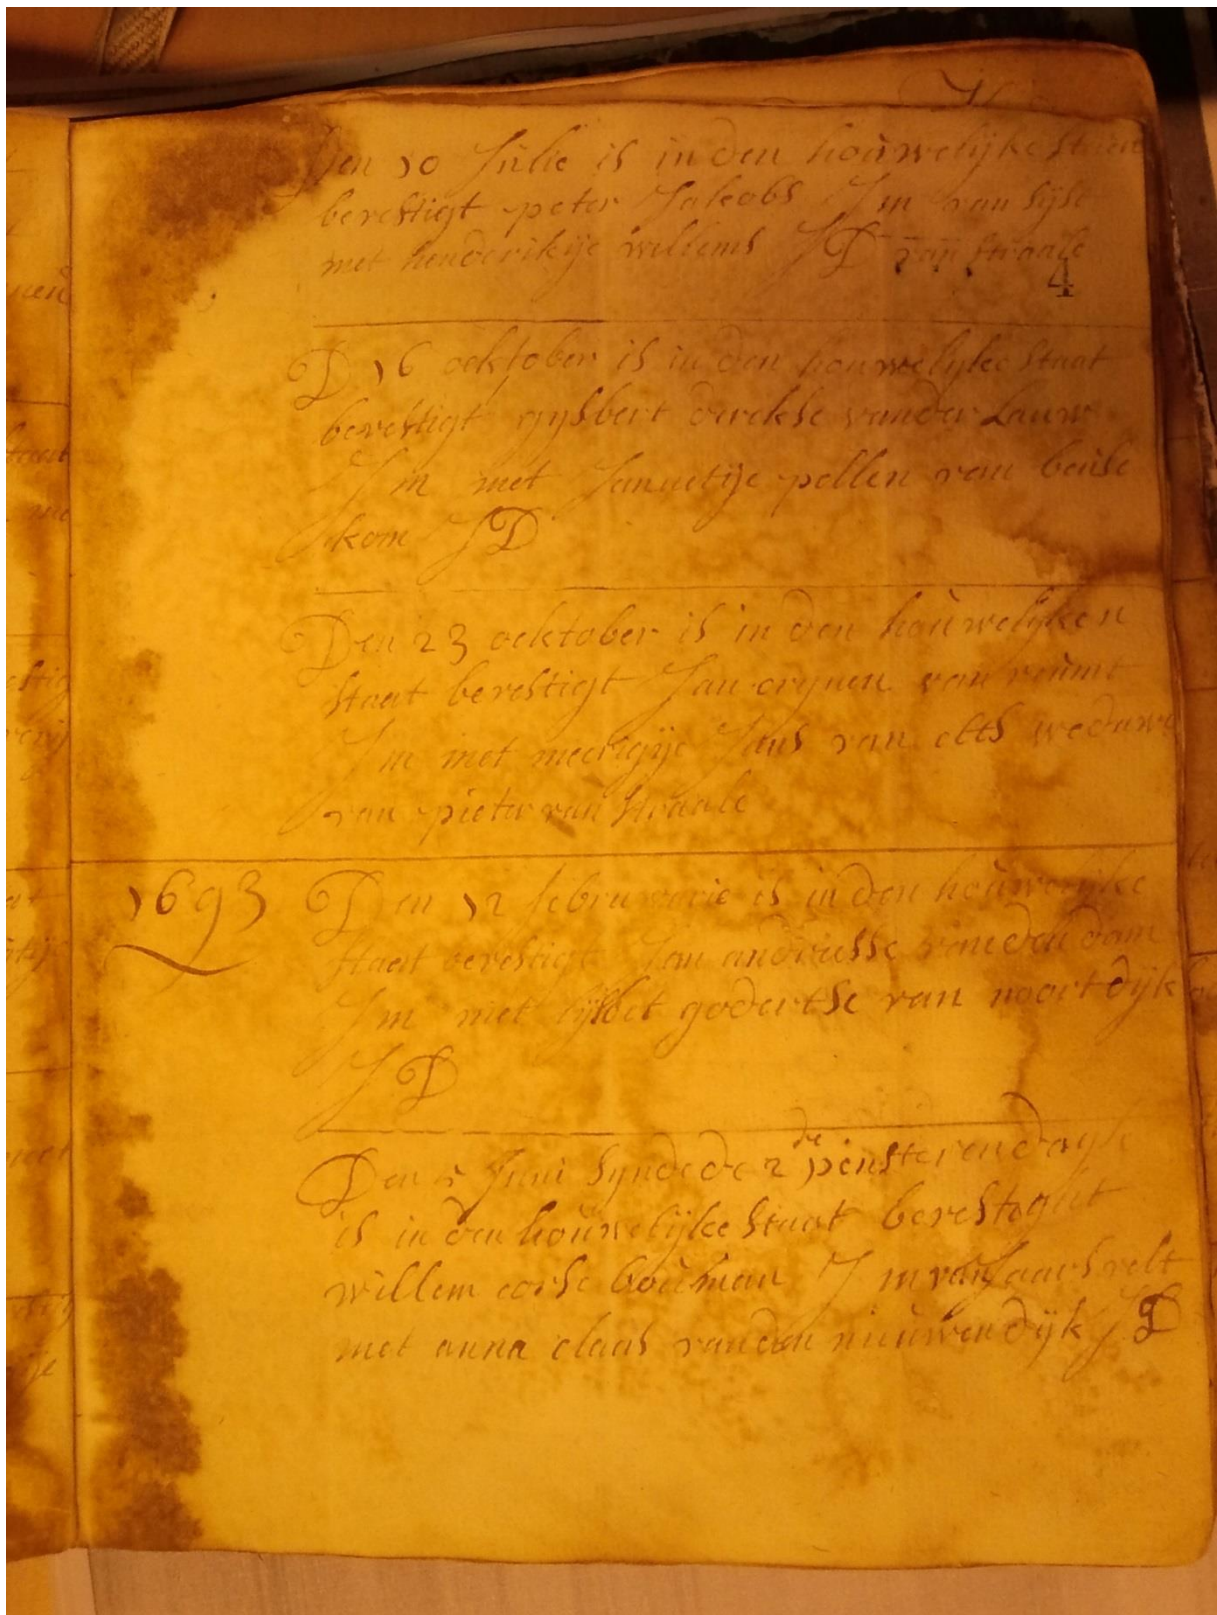 Den 10 Julie is in den houwelijke staat
bevestigt peter Jakobs Jm van lijst
met henderikije willems JD van straale
4
D 16 ocktober is in den houwelijke staat
bevestigt gijsbert dirckse vander Lauw
Jm met Jannetije pellen van beuse
kom JD
Den 23 ocktober is in den houwelijken
staat bevestigt Jan crijnen van
Jm met Jans van weduwe
van pieter van straale
1693 Den 12 februwarie is in den houwelijke
staat bevestigt Jan andriesse van den dam
Jm met lijsbet godertse van noortdijk
JD
Den 5 Juni sijnde de 2de pinsterendagh
is in den houwelijke staat bevestight
willem corse bouman Jm van Jaarsvelt
met anna claas vanden nieuwendijk JD